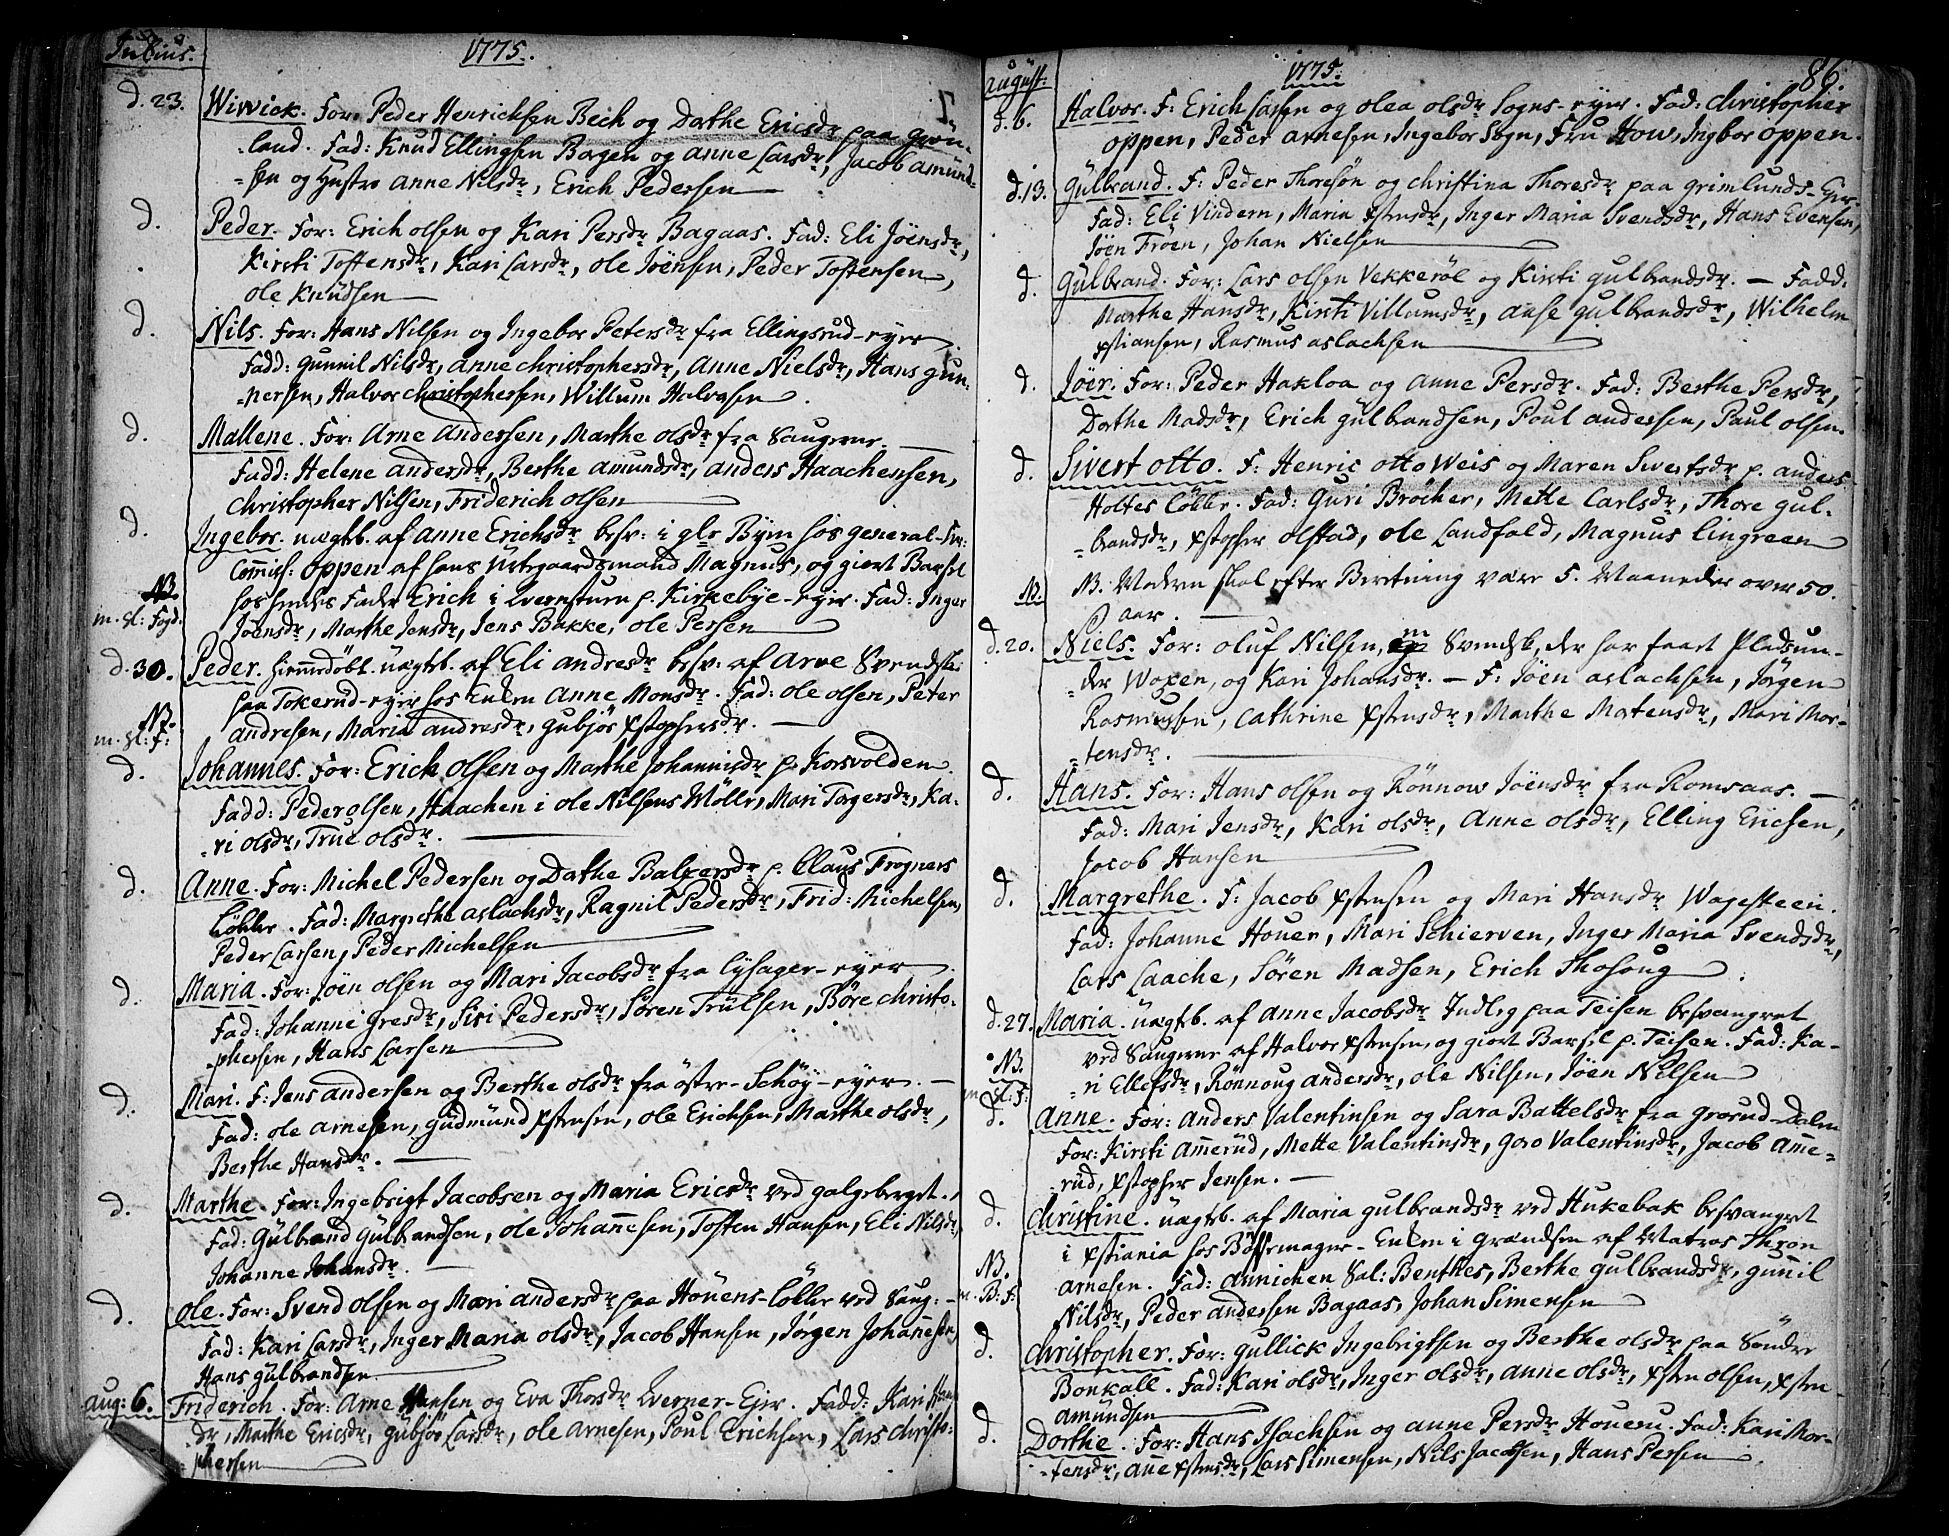 Julius.
1775.
d. 23. Wiwick. For: Peder Henrichsen Bech og Dorthe Ericsdr paa Grön-
-land. Fad: Knud Ellingsen Bagen og Anne Larsdr, Jacob Amund-
-sen og Hustro Anne Nilsdr, Erich Pedersen
d. Peder. For: Erich Olsen og Kari Persdr Bagaas. Fad: Eli Jöensdr,
Kirsti Tostensdr, Kari Larsdr, Ole Jöensen, Peder Tostensen,
Ole Knudsen
d. Nils. For: Hans Nilsen og Ingebor Petersdr fra Ellingsrud-eyer.
Fadd: Gunnil Nilsdr, Anne Christophersdr, Anne Nielsdr, Hans Gun-
-nersen, Halvor Christophersen, Willum Halvorsen.
d. Mallene. For: Arne Andersen, Marthe Olsdr fra Saugerne.
Fadd: Helene Andersdr, Berthe Amundsdr, Anders Haachensen,
Christopher Nilsen, Friderich Olsen
d. Ingebor. uægtb. af Anne Erichsdr besv: i glr Byen hos General-Kr:
Commiss: Oppen af hans Udtrgaardsmand Magnus, og giort Barsel
NB. hos hendes Fader Erich i Qvernstuen p. Kirkebye-eyer. Fad: Inger
m. sl: Fogd. Jöensdr, Marthe Jensdr, Jens Bakke, Ole Persen
d. 30. Peder. hiemmedöbt. uægtb. af Eli Andresdr besv: af Arve Svendsk:
paa Tokerud-eyer hos Enken Anne Monsdr. Fad: Ole Olsen, Peter
NB. Andresen, Maria Andresdr, Gubjör Xstophersdr.
m. sl: F:
d. Johannes. For: Erich Olsen og Marthe Johannisdr p. Korsvolden.
Fadd: Peder Olsen, Haachen i Ole Nilsens Mölle, Mari Torgersdr, Ka-
-ri Olsdr, True Olsdr.
d. Anne. For: Michel Pedersen og Dorthe Balzersdr p. Claus Frogners
Lökke. Fad: Margrethe Aslachsdr, Ragnil Pedersdr, Frid: Michelsen,
Peder Larsen, Peder Michelsen
d. Maria. For: Jöen Olsen og Mari Jacobsdr fra Lysager-eyer.
Fad: Johanne Gresdr, Siri Pedersdr, Sören Trulsen, Böre Christo-
-phersen, Hans Larsen
d. Mari. F: Jens Andersen og Berthe Olsdr fra östre-Schöy-eyer.
Fad: Ole Arnesen, Gudmund Xstensen, Ole Erichsen, Marthe Olsdr,
Berthe Hansdr.
d. Marthe. For: Ingebrigt Jacobsen og Maria Ericsdr ved Galgeberget.
Fad: Gulbrand Gulbrandsen, Ole Johannesen, Tosten Hansen, Eli Nilsdr,
Johanne Johansdr.
d. Ole. For: Svend Olsen og Mari Andersdr paa Höuens-Lökke ved Saug:
Fad: Kari Larsdr, Inger Maria Olsdr, Jacob Hansen, Jörgen Johannesen,
Hans Gulbrandsen
Aug: 6. Friderich. For: Arne Hansen og Eva Thorsdr Qverner-Ejer. Fadd: Kari Hans
dr, Marthe Ericsdr, Gubjör Larsdr, Ole Arnesen, Poul Erichsen, Lars Christo-
-phersen
August:
1775.
86.
d. 6. Halvor. F: Erich Larsen og Olea Olsdr Sogns-eyer. Fad: Christopher
Oppen, Peder Arnesen, Ingebor Sogn, Fru How, Ingbor Oppen.
d. 13. Gulbrand. F: Peder Thoresön og Christina Thoresdr paa Grimlunds-Ejer.
Fad: Eli Vindern, Maria Xstensdr, Inger Maria Svendsdr, Hans Evensen,
Jöen Fröen, Johan Nielsen
d. Gulbrand. For: Lars Olsen Vekkeröl og Kirsti Gulbrandsdr. — Fadd.
Marthe Hansdr, Kirsti Villumsdr, Anse Gulbrandsdr, Wilhelm
Xstiansen, Rasmus Aslachsen
d. Jöer. For: Peder Hakloa og Anne Persdr. Fad: Berthe Persdr,
Dorthe Madsdr, Erich Gulbrandsen, Poul Andessen, Paul Olsen.
d. Sivert Otto. F: Henric Otto Weis og Maren Sivertsdr p. Anders
Holtes Lökke. Fad: Guri Bröcher, Mette Carlsdr, Thore Gul-
-brandsdr, Xstopher Olstad, Ole Landfald, Magnus Lingreen
NB. NB. Moderen skal efter Beretning være 5. Maaneder over 50.
aar.
d. 20. Niels. For: Oluf Nilsen, en Svendsk, der har faaet Plads un-
-der Woxen, og Kari Johansdr. — F: Jöen Aslachsen, Jörgen
Rasmussen, Cathrine Xstensdr, Marthe Mortensdr, Mari Mor-
-tensdr.
d. Hans. For: Hans Olsen og Rönnow Jöensdr fra Romsaas. —
Fad: Mari Jensdr, Kari Olsdr, Anne Olsdr, Elling Ericsen,
Jacob Hansen
d. Margrethe. F: Jacob Xstensen og Mari Hansdr Wagesteen.
Fad: Johanne Houer, Mari Schierven, Inger Maria Svendsdr,
Lars Laache, Sören Madsen, Erich Thosong
d. 27. Maria. uægtb. af Anne Jacobsdr Indlig paa Teisen besvangret
NB. ved Saugerne af Halvor Xstensen, og giort Barsel p. Teisen. Fad: Ka-
m. sl: F: -ri Ellefsdr, Rönnoug Andersdr, Ole Nilsen, Jöen Nilsen
d. Anne. For: Anders Valentinsen og Sara Battelsdr fra Grorud-Dalen
For: Kirsti Ammerud, Mette Valentinsdr, Goro Valentinsdr, Jacob Amme-
-rud, Xstopher Jensen. —
d. Christine. uægtb. af Maria Gulbrandsdr ved Hukebak besvangret
i Xstiania hos Bössemager-Enken i Grændsen af Matros Thron
NB. Arnesen. Fad: Annichen Sal: Benthes, Berthe Gulbrandsdr, Gunil
m. B: F: Nilsdr, Peder Andersen Bagaas, Johan Simensen
d. Christopher. For: Gullick Ingebrigtsen og Berthe Olsdr paa Söndre
Bonkall. Fad: Kari Olsdr, Inger Olsdr, Anne Olsdr, Xsten Olsen, Xsten
Amundsen
d. Dorthe. For: Hans Isachsen og Anne Persdr Houeru. Fad: Kari Mor-
-tensdr, Anne Xstensdr, Lars Simensen, Nils Jacobsen, Hans Persen.